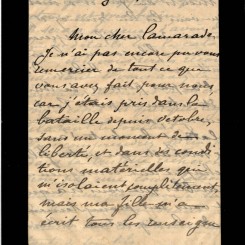 Mon cher Camarade
Je n'ai pas encore pu vous
remercier de tout ce que
vous avez fait pour nous
car j'étais pris dans la
bataille depuis octobre,
sans un moment de
liberté, et dans des condi
tions matérielles qui
m'isolaient complètement,
mais ma fille m'a
écrit tous les renseigne